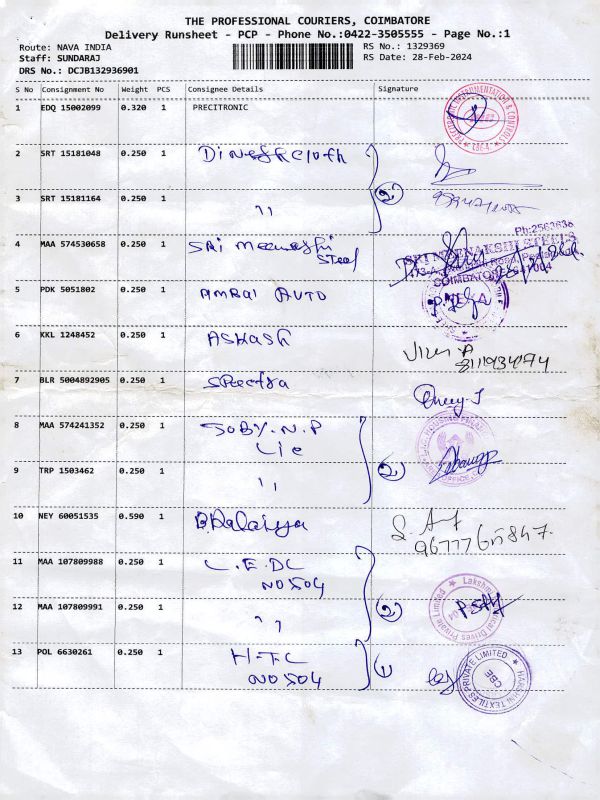 THE PROFESSIONAL COURIERS, COIMBATORE
Delivery Runsheet - PCP - Phone No.:0422-3505555 - Page No.:1
Route: NAVA INDIA
RS No.: 1329369
Staff: SUNDARAJ
RS Date: 28-Feb-2024
DRS No.: DCJB132936901
S No Consignment No Weight PCS Consignee Details Signature
1 EDQ 15002099 0.320 1 PRECITRONIC
2 SRT 15181048 0.250 1 Dinesh cloth
3 SRT 15181164 0.250 1 ,, 2
4 MAA 574530658 0.250 1 SRI Meenakshi
Steel
Ph:2563636
SRI MEENAKSHI STEELS
COIMBATORE
5 PDK 5051802 0.250 1 AMBAL AUTO
6 KKL 1248452 0.250 1 ASHash
7 BLR 5004892905 0.250 1 Spectra
8 MAA 574241352 0.250 1 SOBY.N.P
Lic
9 TRP 1503462 0.250 1 ,, 2
10 NEY 60051535 0.590 1
9677765847
11 MAA 107809988 0.250 1 L.E.DC
NO504
12 MAA 107809991 0.250 1 ,, 2
13 POL 6630261 0.250 1 H.T.C
NO504 1
HARSHNI TEXTILES PRIVATE LIMITED
CBE